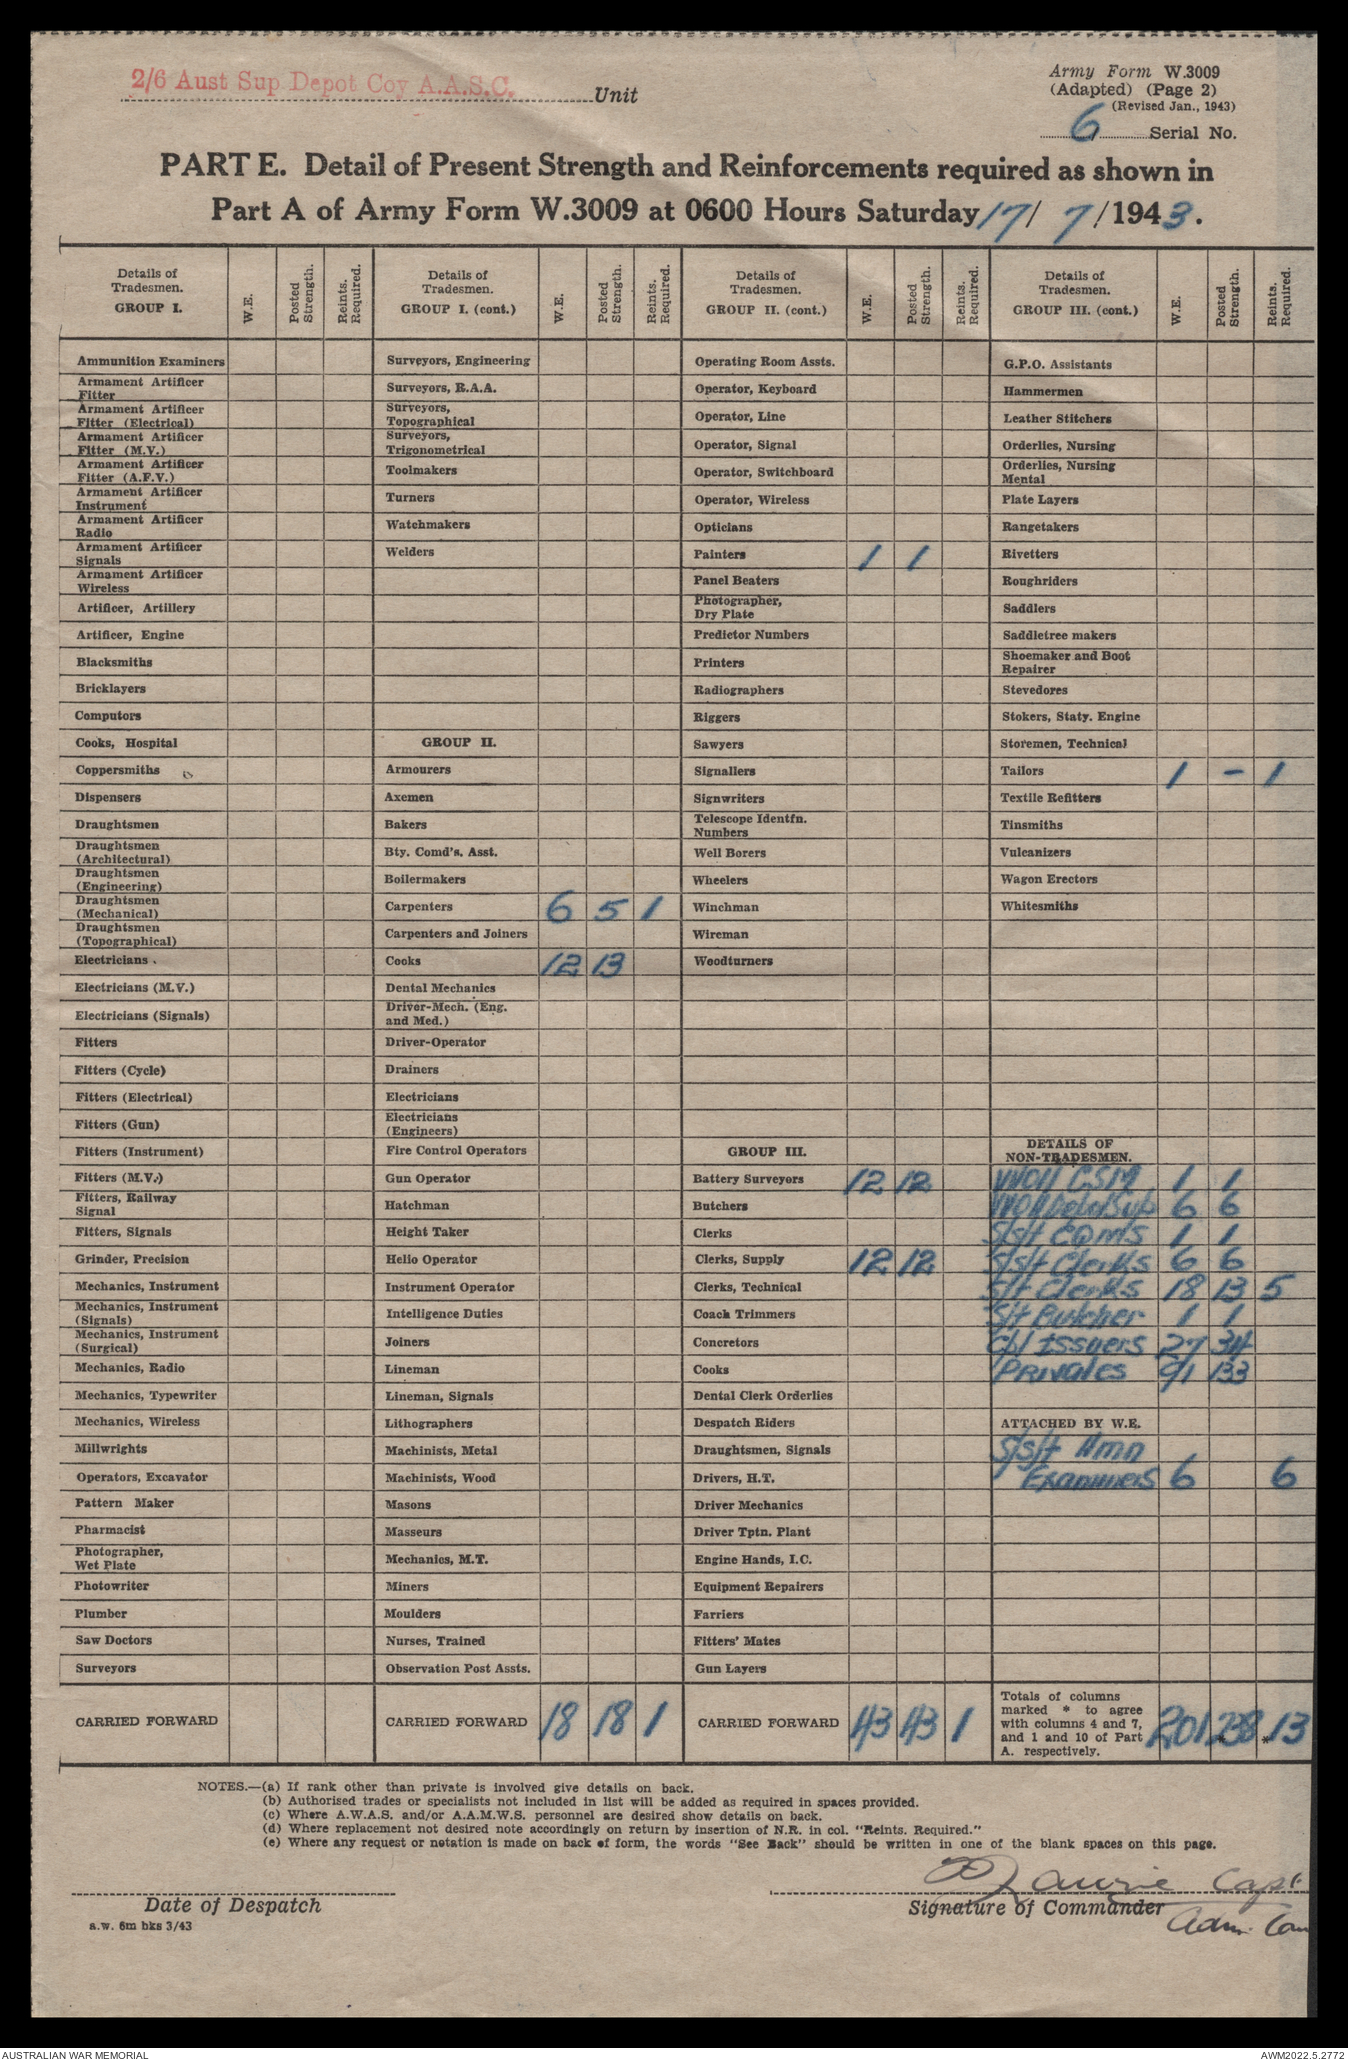 2/6 Aust Sup Depot Coy A.A.S.C. Unit
Army Form W.3009
(Adapted) (Page 2)
(Revised Jan., 1943)
6 Serial No.
PART E. Detail of Present Strength and Reinforcements required as shown in
Part A of Army Form W.3009 at 0600 Hours Saturday 17/ 7/1943.
Details of Tradesmen. GROUP I.
W.E.
Posted Strength.
Reints. Required.
Ammunition Examiners
Armament Artificer
Fitter
Armament Artificer
Fitter (Electrical)
Armament Artificer
Fitter (M.V.)
Armament Artificer
Fitter (A.F.V.)
Armament Artificer
Instrument
Armament Artificer
Radio
Armament Artificer
Signals
Armament Artificer
Wireless
Artificer, Artillery
Artificer, Engine
Blacksmiths
Bricklayers
Computors
Cooks, Hospital
Coppersmiths
Dispensers
Draughtsmen
Draughtsmen
(Architectural)
Draughtsmen
(Engineering)
Draughtsmen
(Mechanical)
Draughtsmen
(Topographical)
Electricians
Electricians (M.V.)
Electricians (Signals)
Fitters
Fitters (Cycle)
Fitters (Electrical)
Fitters (Gun)
Fitters (Instrument)
Fitters (M.V.)
Fitters, Railway
Signal
Fitters, Signals
Grinder, Precision
Mechanics, Instrument
Mechanics, Instrument
(Signals)
Mechanics, Instrument
(Surgical)
Mechanics, Radio
Mechanics, Typewriter
Mechanics, Wireless
Millwrights
Operators, Excavator
Pattern Maker
Pharmacist
Photographer,
Wet Plate
Photowriter
Plumber
Saw Doctors
Surveyors
CARRIED FORWARD
Details of Tradesmen. GROUP I. (cont.)
W.E.
Posted Strength.
Reints. Required.
Surveyors, Engineering
Surveyors, R.A.A.
Surveyors,
Topographical
Surveyors,
Trigonometrical
Toolmakers
Turners
Watchmakers
Welders
GROUP II.
Armourers
Axemen
Bakers
Bty. Comd's. Asst.
Boilermakers
Carpenters 6 5 1
Carpenters and Joiners
Cooks 12 13
Dental Mechanics
Driver-Mech. (Eng.
and Med.)
Driver-Operator
Drainers
Electricians
Electricians
(Engineers)
Fire Control Operators
Gun Operator
Hatchman
Height Taker
Helio Operator
Instrument Operator
Intelligence Duties
Joiners
Lineman
Lineman, Signals
Lithographers
Machinists, Metal
Machinists, Wood
Masons
Masseurs
Mechanics, M.T.
Miners
Moulders
Nurses, Trained
Observation Post Assts.
CARRIED FORWARD 18 18 1
Details of Tradesmen. GROUP II. (cont.)
W.E.
Posted Strength.
Reints. Required.
Operating Room Assts.
Operator, Keyboard
Operator, Line
Operator, Signal
Operator, Switchboard
Operator, Wireless
Opticians
Painters 1 1
Panel Beaters
Photographer,
Dry Plate
Predictor Numbers
Printers
Radiographers
Riggers
Sawyers
Signallers
Signwriters
Telescope Identfn.
Numbers
Well Borers
Wheelers
Winchman
Wireman
Woodturners
GROUP III.
Battery Surveyors 12 12
Butchers
Clerks
Clerks, Supply 12 12
Clerks, Technical
Coach Trimmers
Concretors
Cooks
Dental Clerk Orderlies
Despatch Riders
Draughtsmen, Signals
Drivers, H.T.
Driver Mechanics
Driver Tptn. Plant
Engine Hands, I.C.
Equipment Repairers
Farriers
Fitters' Mates
Gun Layers
CARRIED FORWARD 43 43 1
Details of Tradesmen. GROUP III. (cont.)
W.E.
Posted Strength.
Reints. Required.
G.P.O. Assistants
Hammermen
Leather Stitchers
Orderlies, Nursing
Orderlies, Nursing
Mental
Plate Layers
Rangetakers
Rivetters
Roughriders
Saddlers
Saddletree makers
Shoemaker and Boot
Repairer
Stevedores
Stokers, Staty. Engine
Storemen, Technical
Tailors 1 - 1
Textile Refitters
Tinsmiths
Vulcanizers
Wagon Erectors
Whitesmiths
DETAILS OF
NON-TRADESMEN.
WOII CSM 1 1
WOII 6 6
S/Sgt CQMS 1 1
S/Sgt Clerks 6 6
S/t Clerks 18 13 5
S/t Butcher 1 1
Cpl Issuers 27 34
Privates 91 133
ATTACHED BY W.E.
S/Sgt Amn
Examiners 6 6
Totals of columns
marked * to agree
with columns 4 and 7,
and 1 and 10 of Part
A. respectively.
201 *238 *13
NOTES.—(a) If rank other than private is involved give details on back.
(b) Authorised trades or specialists not included in list will be added as required in spaces provided.
(c) Where A.W.A.S. and/or A.A.M.W.S. personnel are desired show details on back.
(d) Where replacement not desired note accordingly on return by insertion of N.R. in col. "Reints. Required."
(e) Where any request or notation is made on back of form, the words "See Back" should be written in one of the blank spaces on this page.
Capt
Date of Despatch
Signature of Commander
Adm.
a.w. 6m bks 3/43
AUSTRALIAN WAR MEMORIAL
AWM2022.5.2772